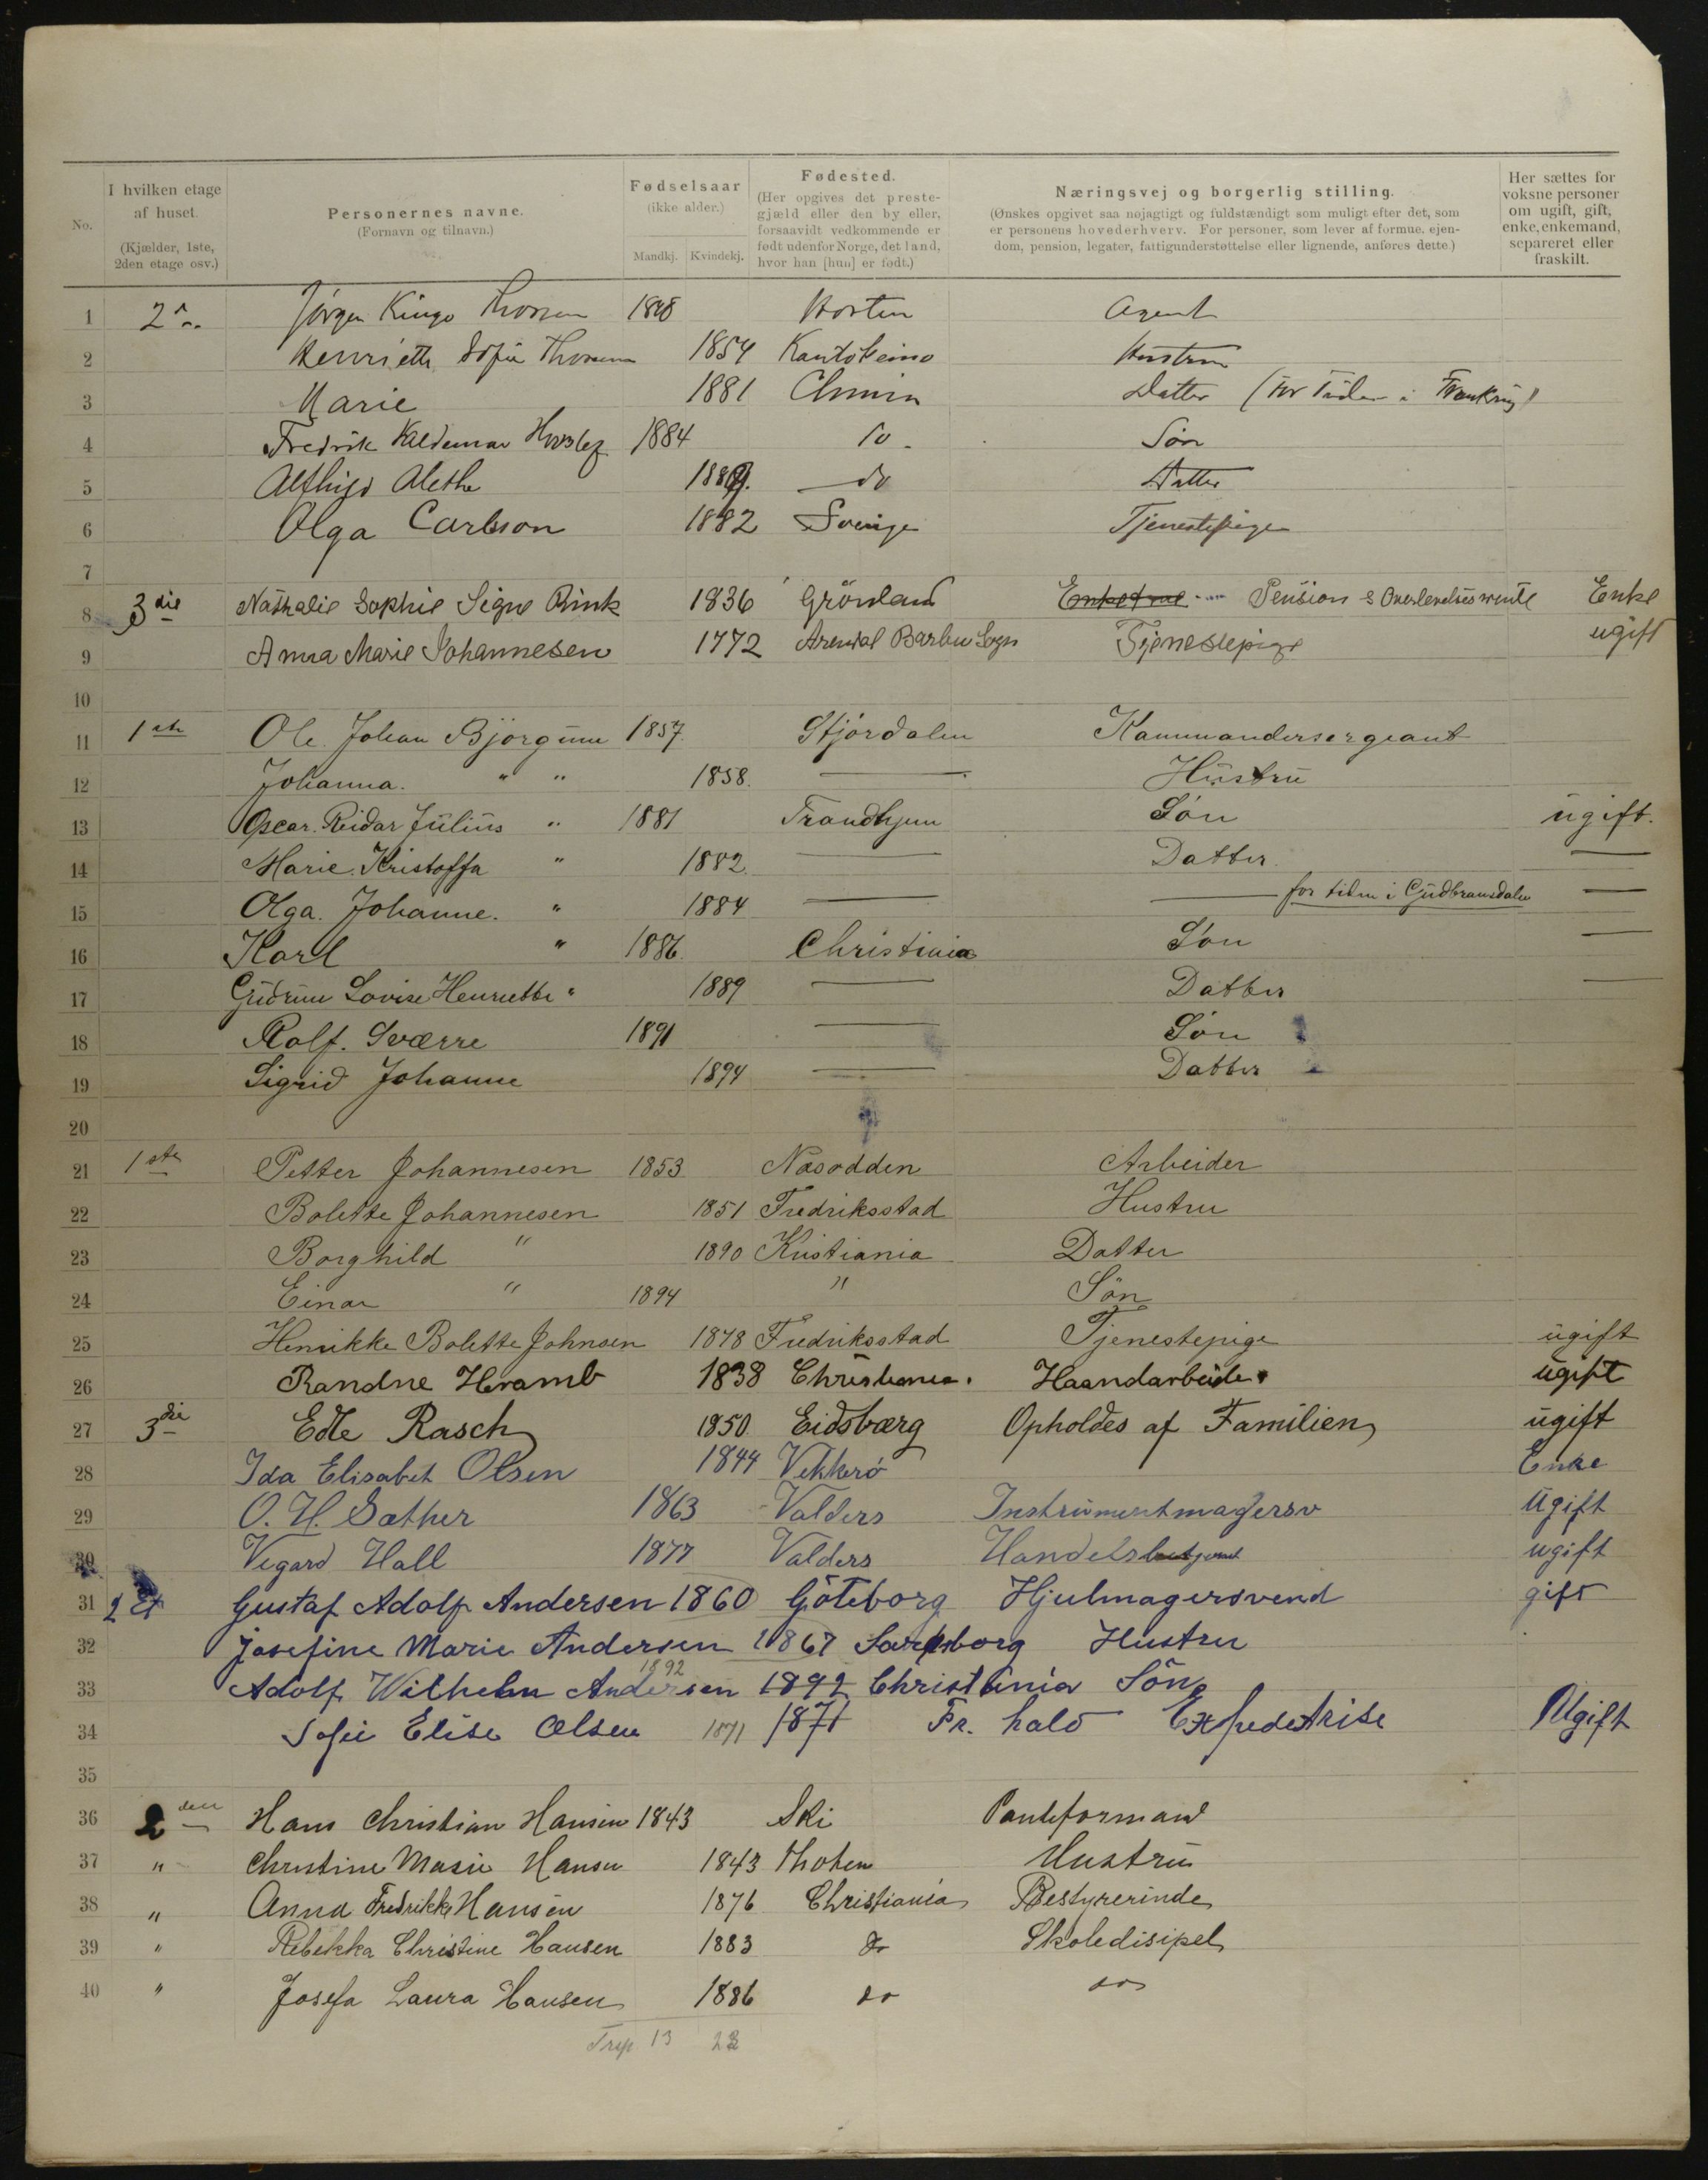 No.
I hvilken etage af huset. (Kjælder, 1ste, 2den etage osv.)
Personernes navne. (Fornavn og tilnavn.)
Fødselsaar (ikke alder.) Mandkj. Kvindekj.
Fødested. (Her opgives det prestegjæld eller den by eller, forsaavidt vedkommende er født udenfor Norge, det land, hvor han [hun] er født.)
Næringsvej og borgerlig stilling. (Ønskes opgivet saa nøjagtigt og fuldstændigt som muligt efter det, som er personens hovederhverv. For personer, som lever af formue, ejendom, pension, legater, fattigunderstøttelse eller lignende, anføres dette.)
Her sættes for voksne personer om ugift, gift, enke, enkemand, separeret eller fraskilt.
1 Jörgen Kingo Horten Agent
2 Sofie 1854 Kautokeino Hustru
3 Marie 1881 Datter (for Tiden i
4 Fredrik Valdemar 1884 do Søn
5 Alethe do Datter
6 Olga Carlsson 1882 Sverige Tjenestepige
7
8 3die Nathalie Sophie Signe Rink 1836 Grönland Pension & Overlevelsesrente Enke
9 Anna Marie Johannesen 1772 Arendal Barbu Sogn Tjenestepige ugift
10
11 1ste Ole Johan Björgum 1857. Stjördalen Kammandersergeant
12 Johanna. " " 1858. — Hüstrü
13 Oscar. Reidar Jülius " 1881 Trondhjem Sön ügift.
14 Marie Kristoffa " 1882. — Datter. —
15 Olga. Johanne. " 1884 — — for tiden i Gudbransdalen —
16 Karl " 1886. Christiania Sön —
17 Güdrün Lovise Henriette " 1889 — Datter —
18 Rolf. Sværre 1891 — Sön
19 Sigrid Johanne 1894 — Datter
20
21 1ste Petter Johannesen 1853 Næsodden Arbeider
22 Bolette Johannesen 1851 Fredriksstad Hustru
23 Borghild " 1890 Kristiania Datter
24 Einar " 1894 " Sön
25 Henrikke Bolette Johnsen 1878 Fredriksstad Tjenestepige ügift
26 Randne 1838 Christiania. Haandarbeide. ügift
27 3die Edle Rasch 1850. Eidsbærg Opholdes af Familien ügift
28 Ida Elisabet Olsen 1844 Vekkerö Enke
29 O. H. Sæther 1863 Valders Instrümentmagersv Ugift
30 Vegard Hall 1877 Valders ugift
31 2 Et Gustaf Adolf Andersen 1860 Göteborg Hjulmagersvend gift
32 Josefine Marie Andersen 1867 Sarpsborg Hustru
33 Adolf Wilhelm Andersen 1892 1892 Christiania Sön
34 Sofie Elise Olsen 1871 1871 Fr. hald Expeditrise Ugift
35
36 2den Hans Christian Hansen 1843 Ski
37 " Christine Marie Hansen 1843 Thoten Hustrü
38 " Anna Fredrikke Hansen 1876 Christiania Bestyrerinde
39 " Rebekka Christine Hansen 1883 do Skoledisipel
40 " Josefa Laura Hansen 1886 do do
13